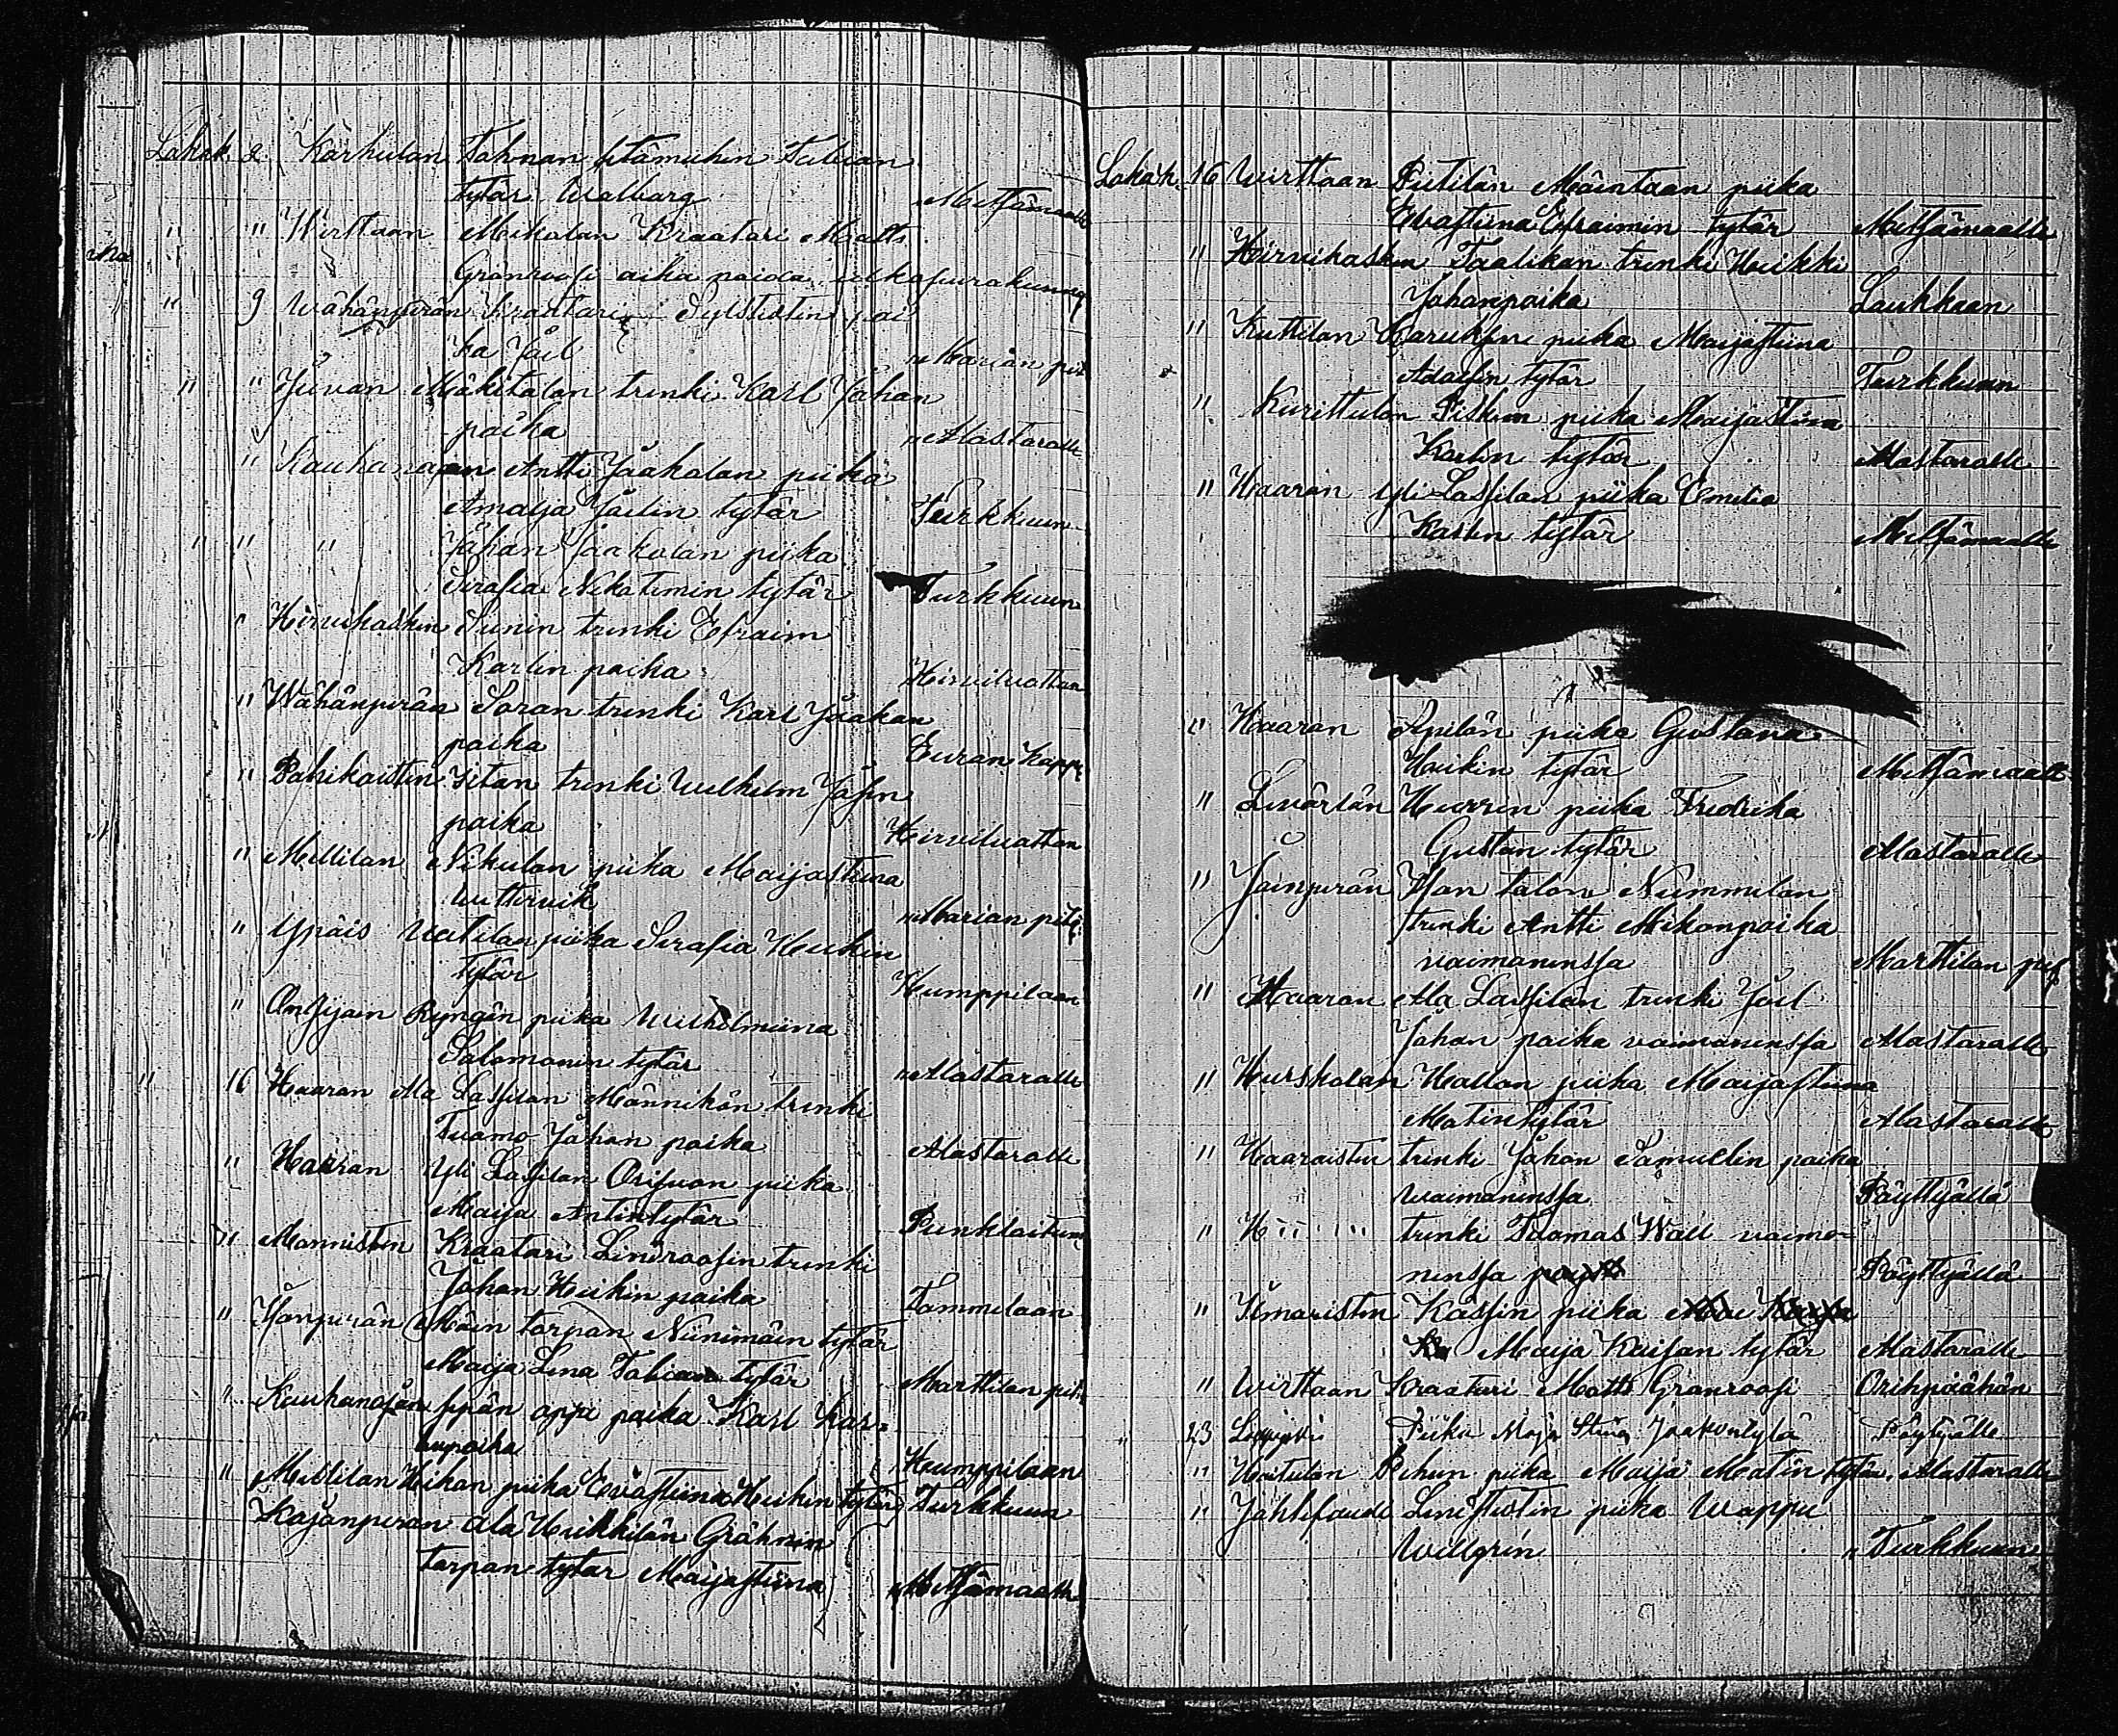 Lokak. 2 Kärkulan Tahvnan sitämihin Taluian
tytär Walbarg Metsämaalle
" " Wirttaan Mikolan Kraatari Matts
Gränroosi aika paida ulkoseurakunnan
" 9 Wähänpirän Kraatari poi
ka Joel Marian pit
" " Juvan Mäkitalon trenki Karl Johan
poika Alastaralle
" Kauhanojan Antti Jaakolan piika
Amalja Joelin tytär Turkkuun
" " " Johan Jaakolan piika
Serafia Nikotemin tytär Turkkuun
" Hirvikosken Sunin trenki Efraim
Karlin poika Hirviluattan
" Wähänpirän Soran trenki Karl Jaakon
poika Euran Kapp:
" Pahikoistin Iitan trenki Wilhelm Josin
poika Hirviluattan
" Mellilan Nikulan piika Maijastiina
Wuttirvik Marian pitä:
" Ypäis Uotilan piika Serafia Heikin
tytär Humppilaan
" Onsijain Ryngän piika Wilhelmiina
Salomonin tytär Alastaralle
" 16 Haaran Ala Lassilan Männikön trenki
Tuamo Johan poika Alastaralle
" Haaran Yli Lassilan Orisuon piika
Maija Antintytär Punklaitum
" Manniston Kraatari Lindroosin trenki
Johan Heikin poika Tammelaan
" Isonpirän Mäen torpan Niinimäin tytär
Maija Lena Tabian tytär Marttilan pit:
" Kauhanojan sepän oppi poika Karl Kar=
lin poika Humppilaan
" Mellilan Heikan piika Ewastiina Heikin tytär Turkkuun
Kojonperan Ala Heikkilän Grähnin
torpan tytar Maijastiina Metsämaalle
Lokak. 16 Wirttaan Pietilän Mäintaan piika
Ewastiina Efraimin tytär Metsämaalle
" Hirvikosken Taalikan trenki Heikki
Johanpoika Laukkaan
" Kuttilan Karuksen piika Maijastiina
Adamin tytär Turkkuun
" Kurittulan Piskun piika Maijastina
Karlin tytär Alastaralle
" Haaran Yli Lassilan piika Emilia
Karlin tytär Metsämaalle
" Haaran Sepilän piika Gustava
Heikin tytär Metsämaalle
" Levärlän Hurrin piika Fredrika
Gustan tytär Alastaralle
" Joenperän Ison talon Nummilan
trenki Antti Mikonpoika
vaimonensa Marttilan pit
" Haaran Ala Lassilan trenki Joel
Johan poika vaimonensa Alastaralle
" Hurskalan Hallan piika Maijastiina
Matintytär Alastaralle
" Haaroisten trenki Johan Samuelin poika
Waimonensa Pöyttyällä
" H " " trenki Tuomas Wall vaimo=
nensa Pöyttyällä
" Ilmaristen Kassin piika
Maija Kaisan tytär Alastaralle
" Wirttaan Kraatari Matts Granroosi Orihpäähän
" 23 Piika Maja Stina Jaakontytä Pöytyälle
" Heitulan Pehun piika Maija Matin tytär Alastaralle
" Johtfoudi Lindstetin piika Wappu
Willgrin Turkkuun